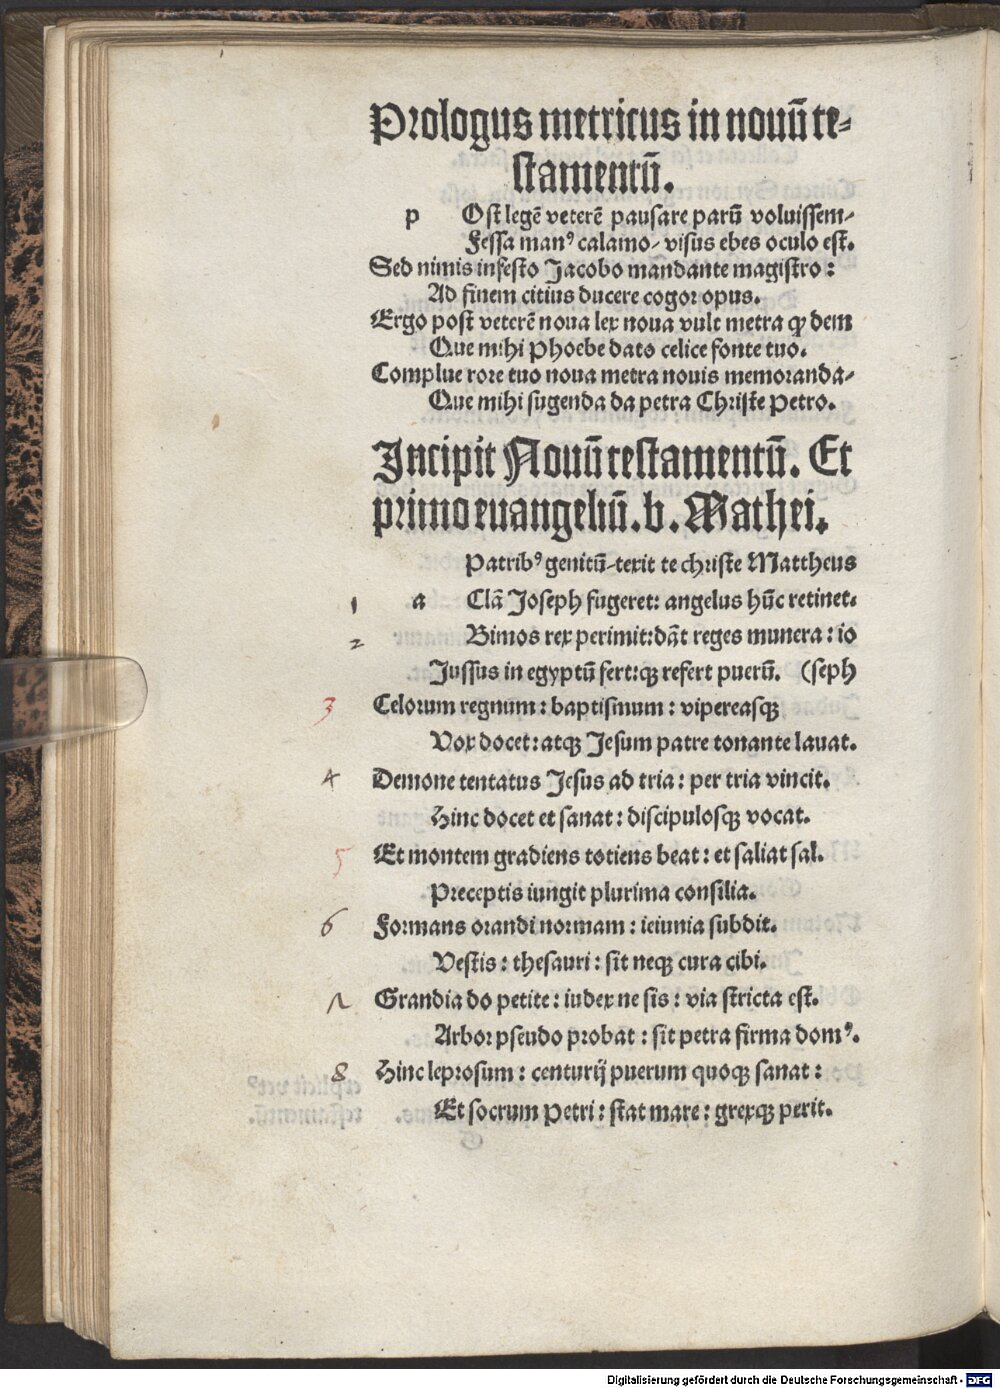 Prologus metricus in nouū te-
stamentū.
p Ost legē veterē pausare parū voluissem/
Fessa manꝰ calamo/ visus ebes oculo est.
Sed nimis infesto Jacobo mandante magistro:
Ad finem citius ducere cogor opus.
Ergo post veterē noua lex noua vult metra ꝙ dem
Que mihi Phoebe dato celice fonte tuo.
Complue rore tuo noua metra nouis memoranda/
Que mihi sugenda da petra Christe Petro.
Incipit Nouū testamentū. Et
primo euangeliū. b. Mathei.
Patribꝰ genitū-texit te christe Mattheus
1 a Clā Joseph fugeret: angelus hūc retinet.
2 Bimos rex perimit: dāt reges munera: io
Jussus in egyptū fert: qꝫ refert puerū. (seph
3 Celorum regnum: baptismum: vipereasqꝫ
Vox docet: atqꝫ Jesum patre tonante lauat.
4 Demone tentatus Jesus ad tria: per tria vincit.
Hinc docet et sanat: discipulosqꝫ vocat.
5 Et montem gradiens totiens beat: et saliat sal.
Preceptis iungit plurima consilia.
6 Formans orandi normam: ieiunia subdit.
Vestis: thesauri: sit neqꝫ cura cibi.
7 Grandia do petite: iudex ne sis: via stricta est.
Arbor pseudo probat: sit petra firma domꝰ.
8 Hinc leprosum: centurij puerum quoqꝫ sanat:
Et socrum Petri: stat mare: grexqꝫ perit.
Digitalisierung gefördert durch die Deutsche Forschungsgemeinschaft - DFG